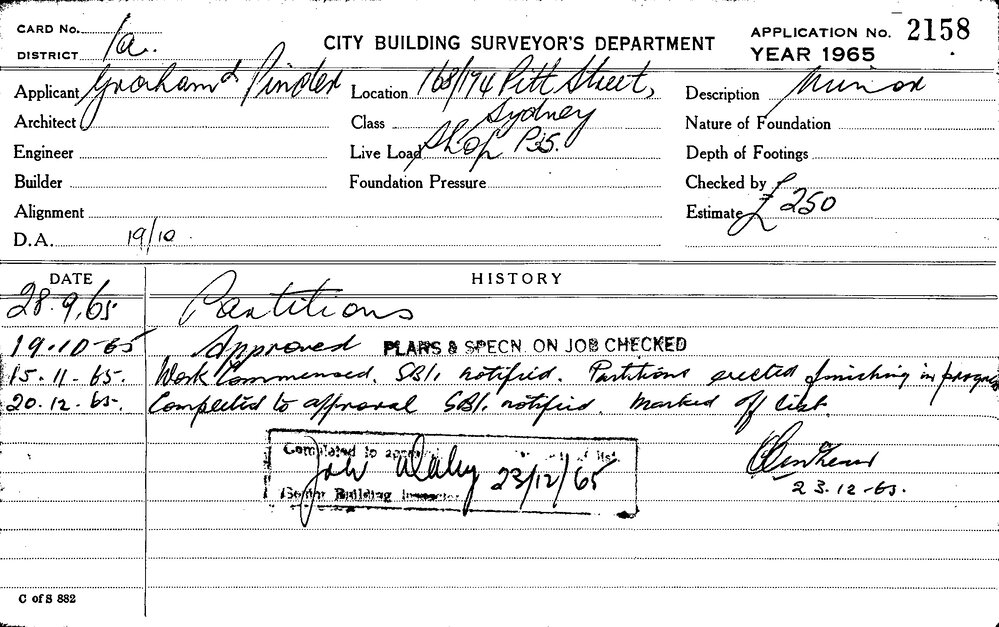 CARD No.
DISTRICT 1a.
CITY BUILDING SURVEYOR'S DEPARTMENT
APPLICATION No. 2158
YEAR 1965
Applicant Graham & Pinder Location 168/194 Pitt Street, Description Minor
Architect Class Sydney Nature of Foundation
Engineer Live Load Shop P35. Depth of Footings
Builder Foundation Pressure Checked by
Alignment Estimate £ 250
D.A. 19/10
DATE HISTORY
28.9.65 Partitions
19.10.65 Approved PLANS & SPECN. ON JOB CHECKED
15.11.65. Work Commenced. SBI. notified. Partitions erected finishing in progress
20.12.65. Completed to approval SBI. notified. Marked off list.
Completed to approval of list
23/12/65
Senior Building Inspector
23.12.65.
C of S 882